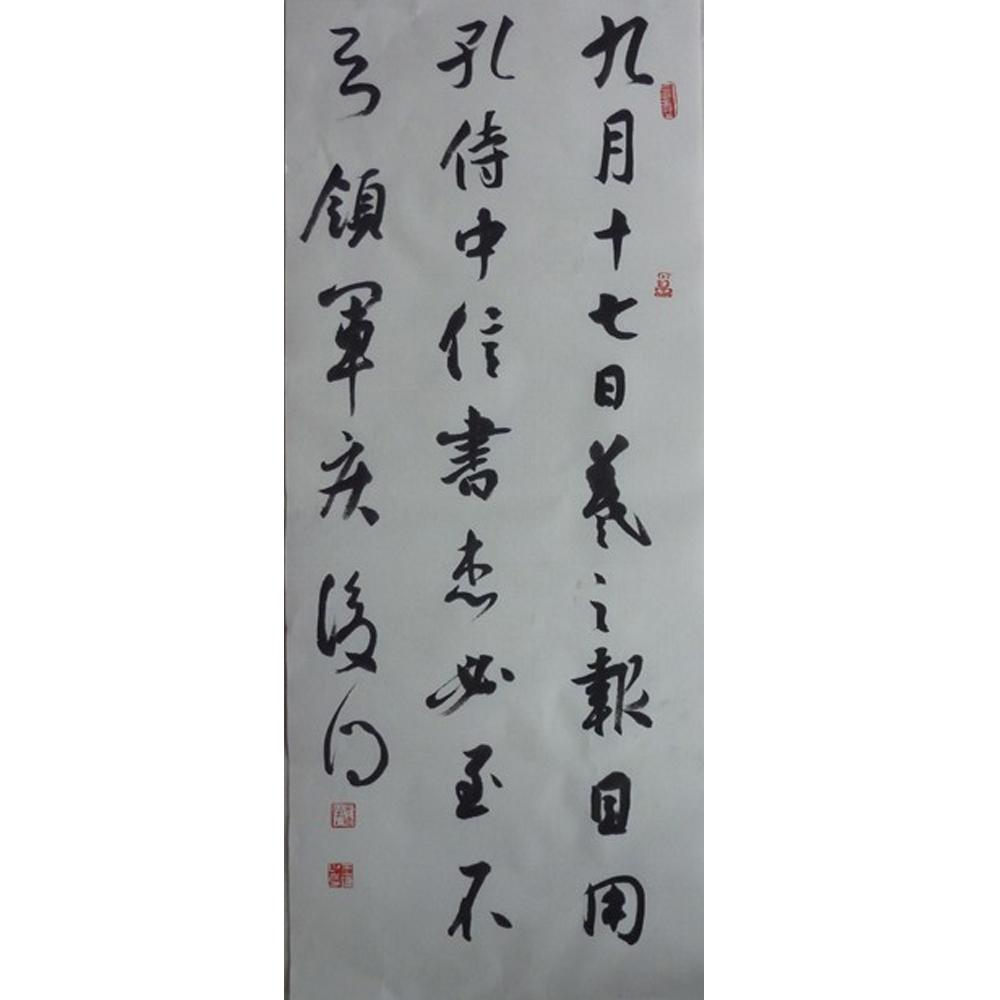 九月十七日羲之報且用
孔侍中信書想必至不
知領軍疾後問